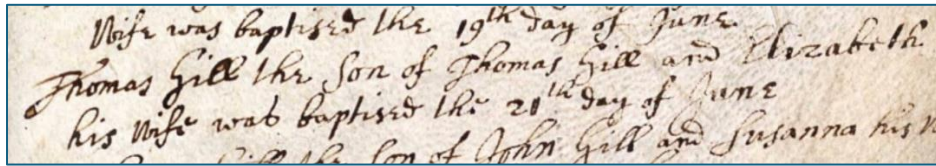 Wife was baptised the 19th day of June
Thomas Hill the Son of Thomas Hill and Elizabeth
his Wife was baptised the 21th day of June
Hill the Son of John Hill and Susanna his